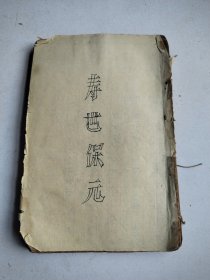 寿世保元